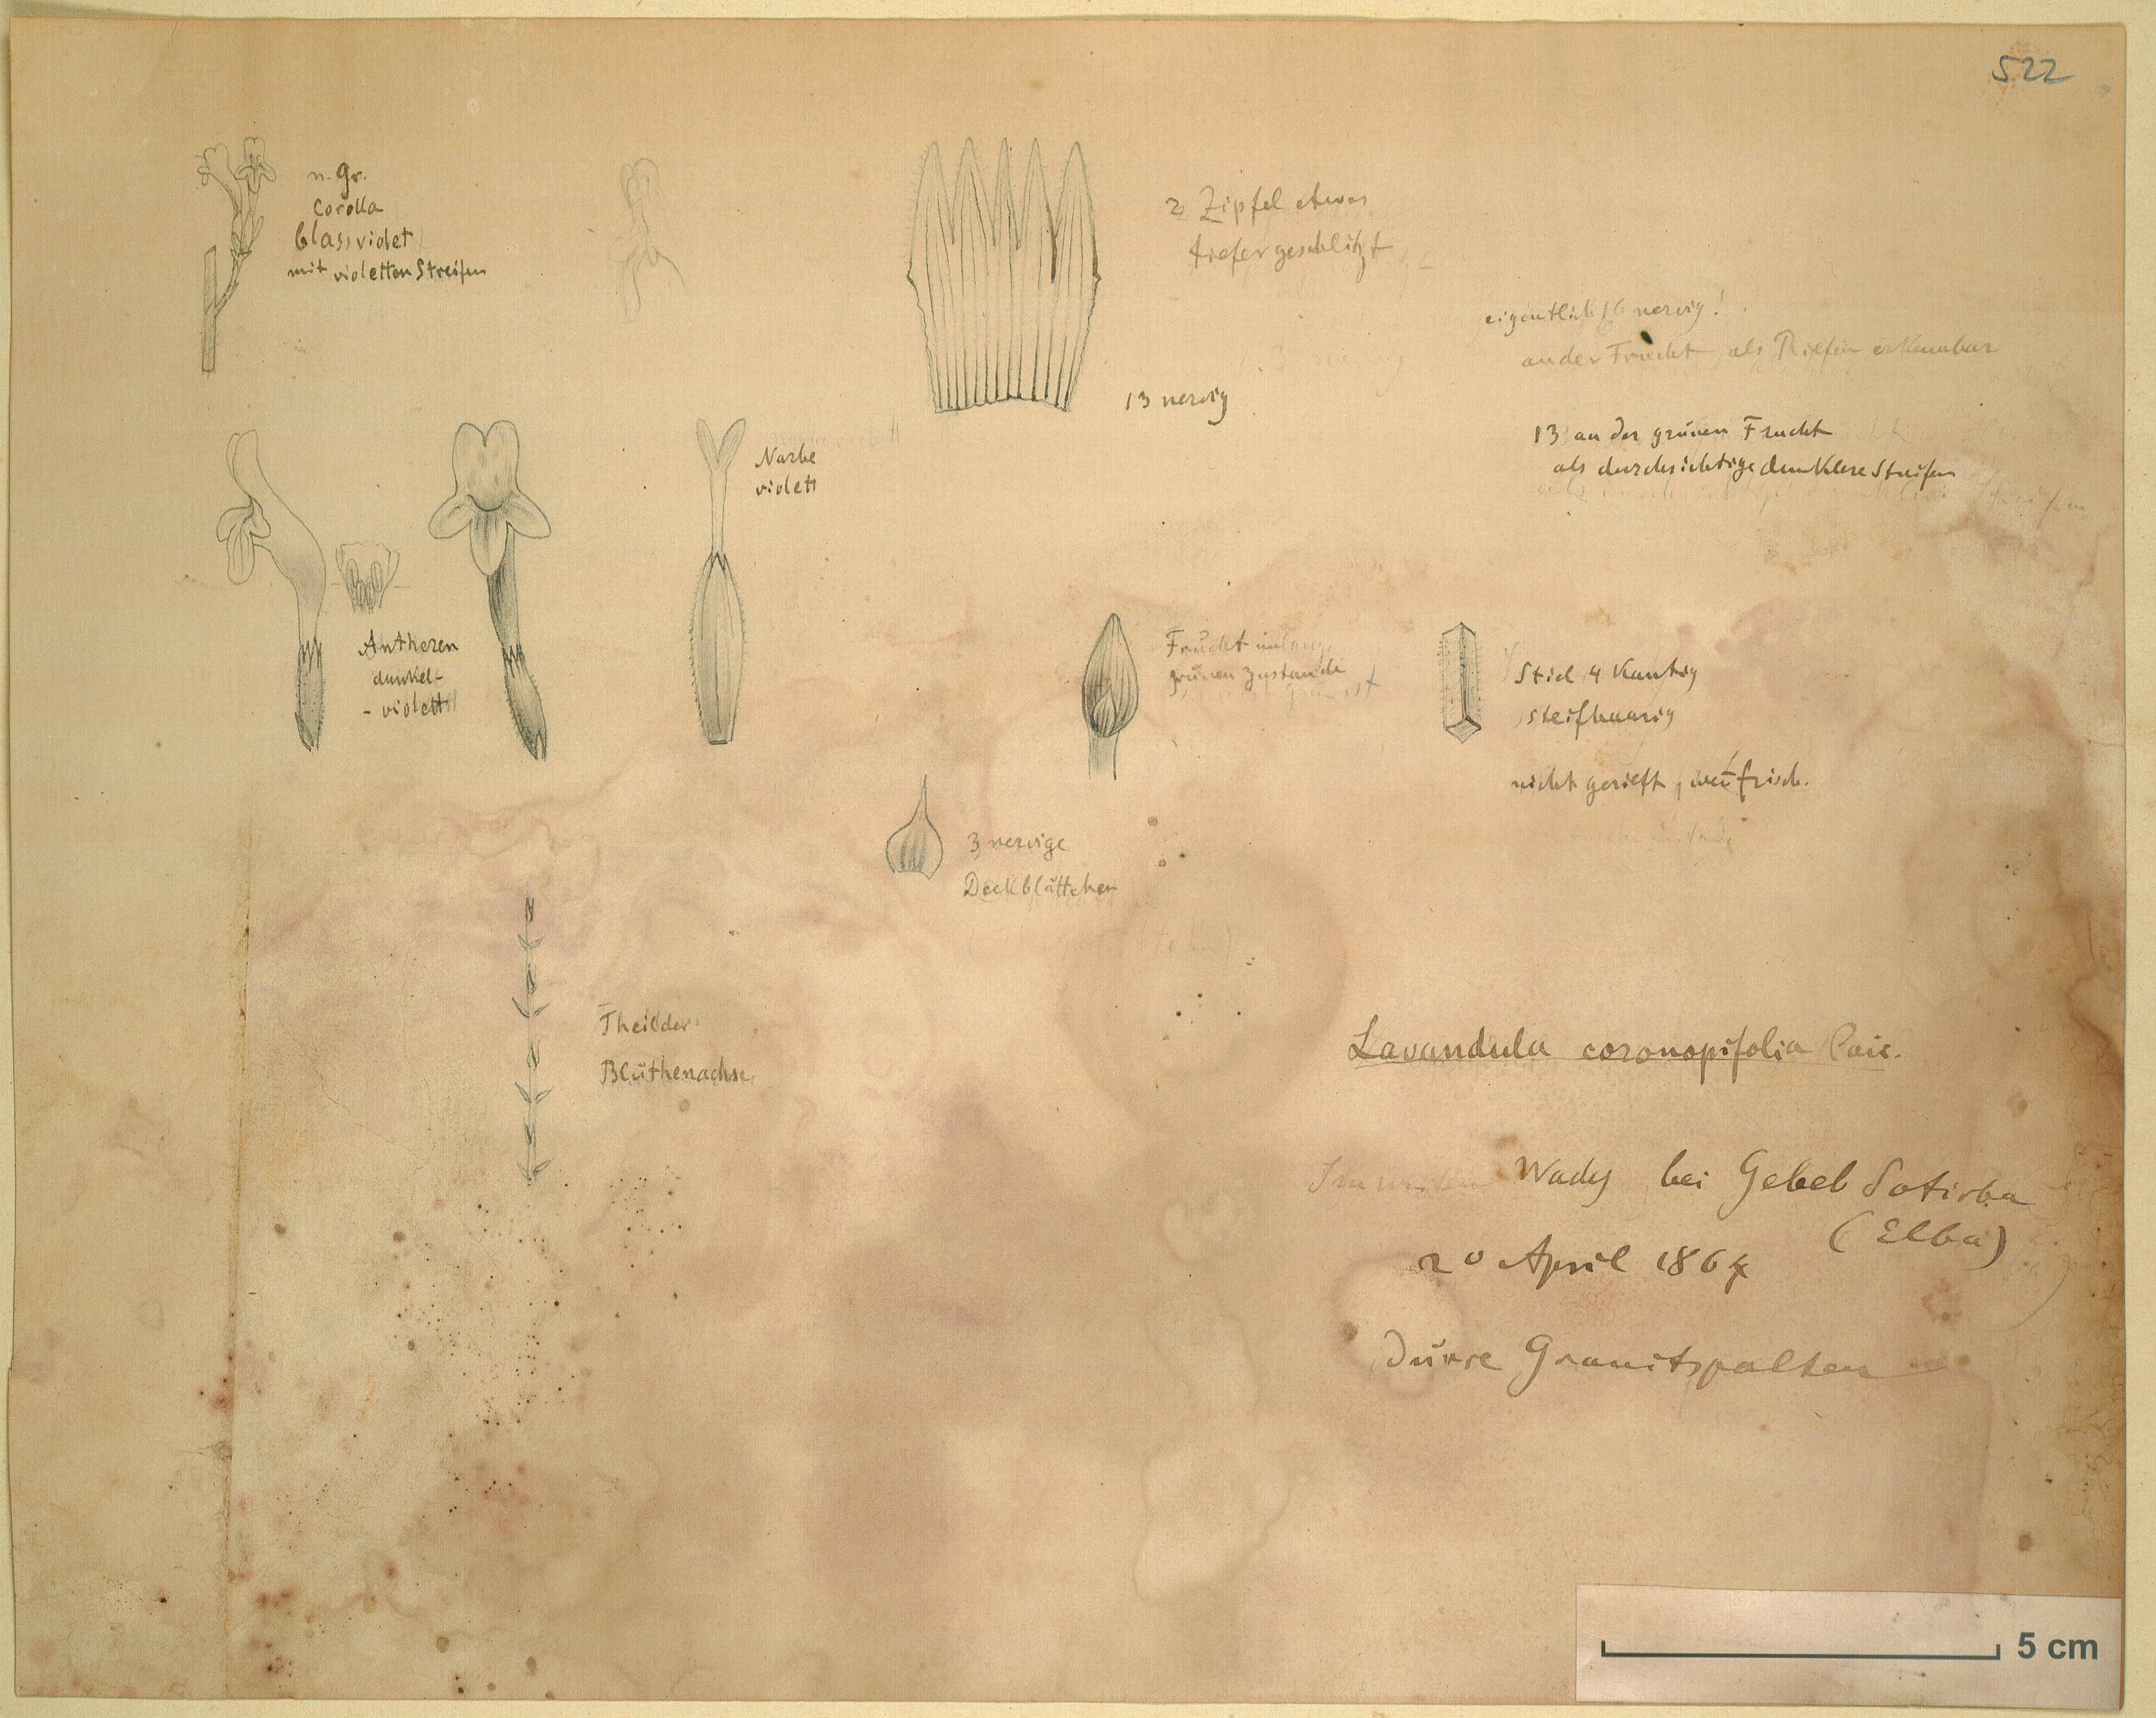 522
n. Gr.
Corolla
blassviolet
mit violetten Streifen
2 Zipfel etwas
tiefer geschlitzt
13 nervig
eigentlich 16 nervig!
an der Frucht als Riefen erkennbar
13 an der grünen Frucht
als durchsichtige dunklere Streifen
Narbe
violett
Antheren
dunkel-
- violett
Frucht im
grünen Zustande
Stiel 4 kantig
steifhaarig
nicht gerieft, frisch.
3 nervige
Deckblättchen
Theil der
Blüthenachse
Lavandula coronopifolia Poir.
Wady bei Gebel Sotirba
(Elba)
20 April 1864
Dürre Granitspalten
5 cm